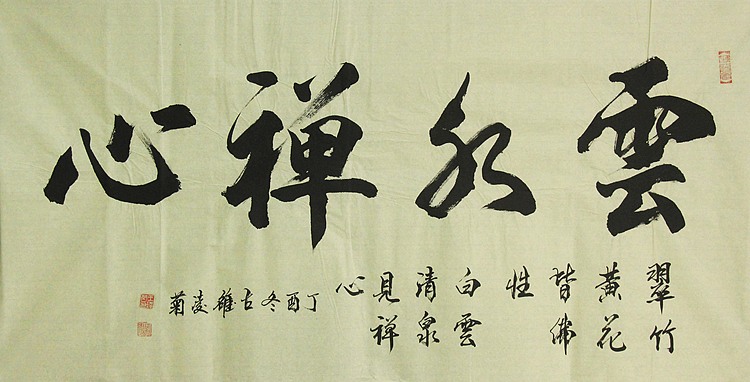 雲水禅心
翠竹
黄花
皆佛
性
白雲
清泉
見禅
心
丁酉冬古雒凌菊